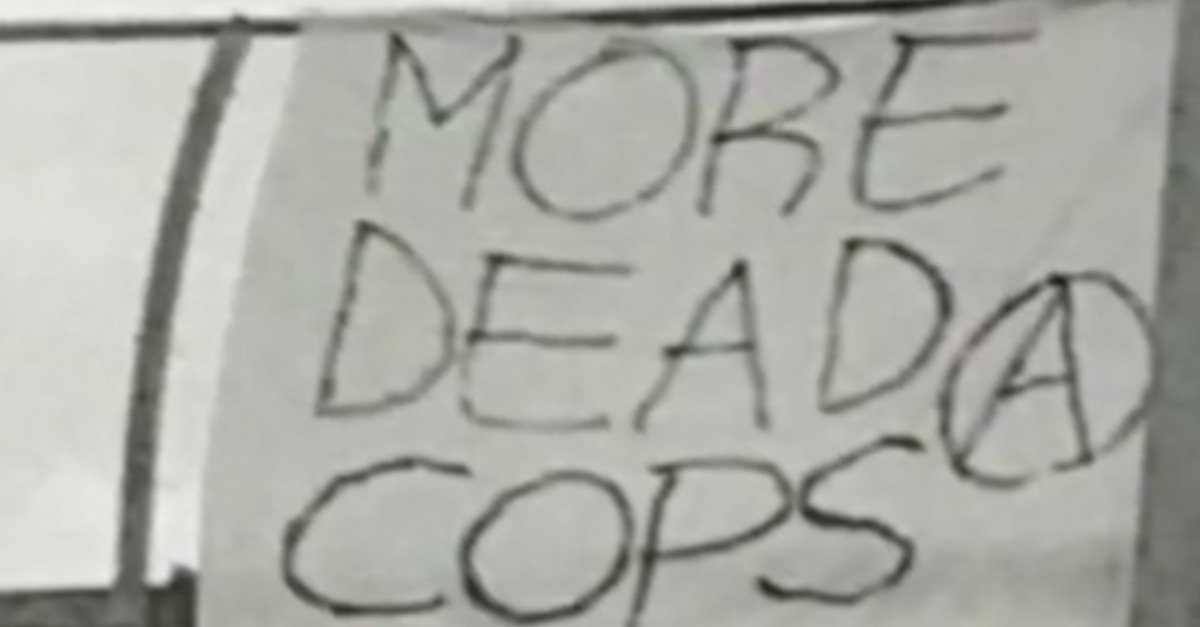 MORE
DEAD Ⓐ
COPS